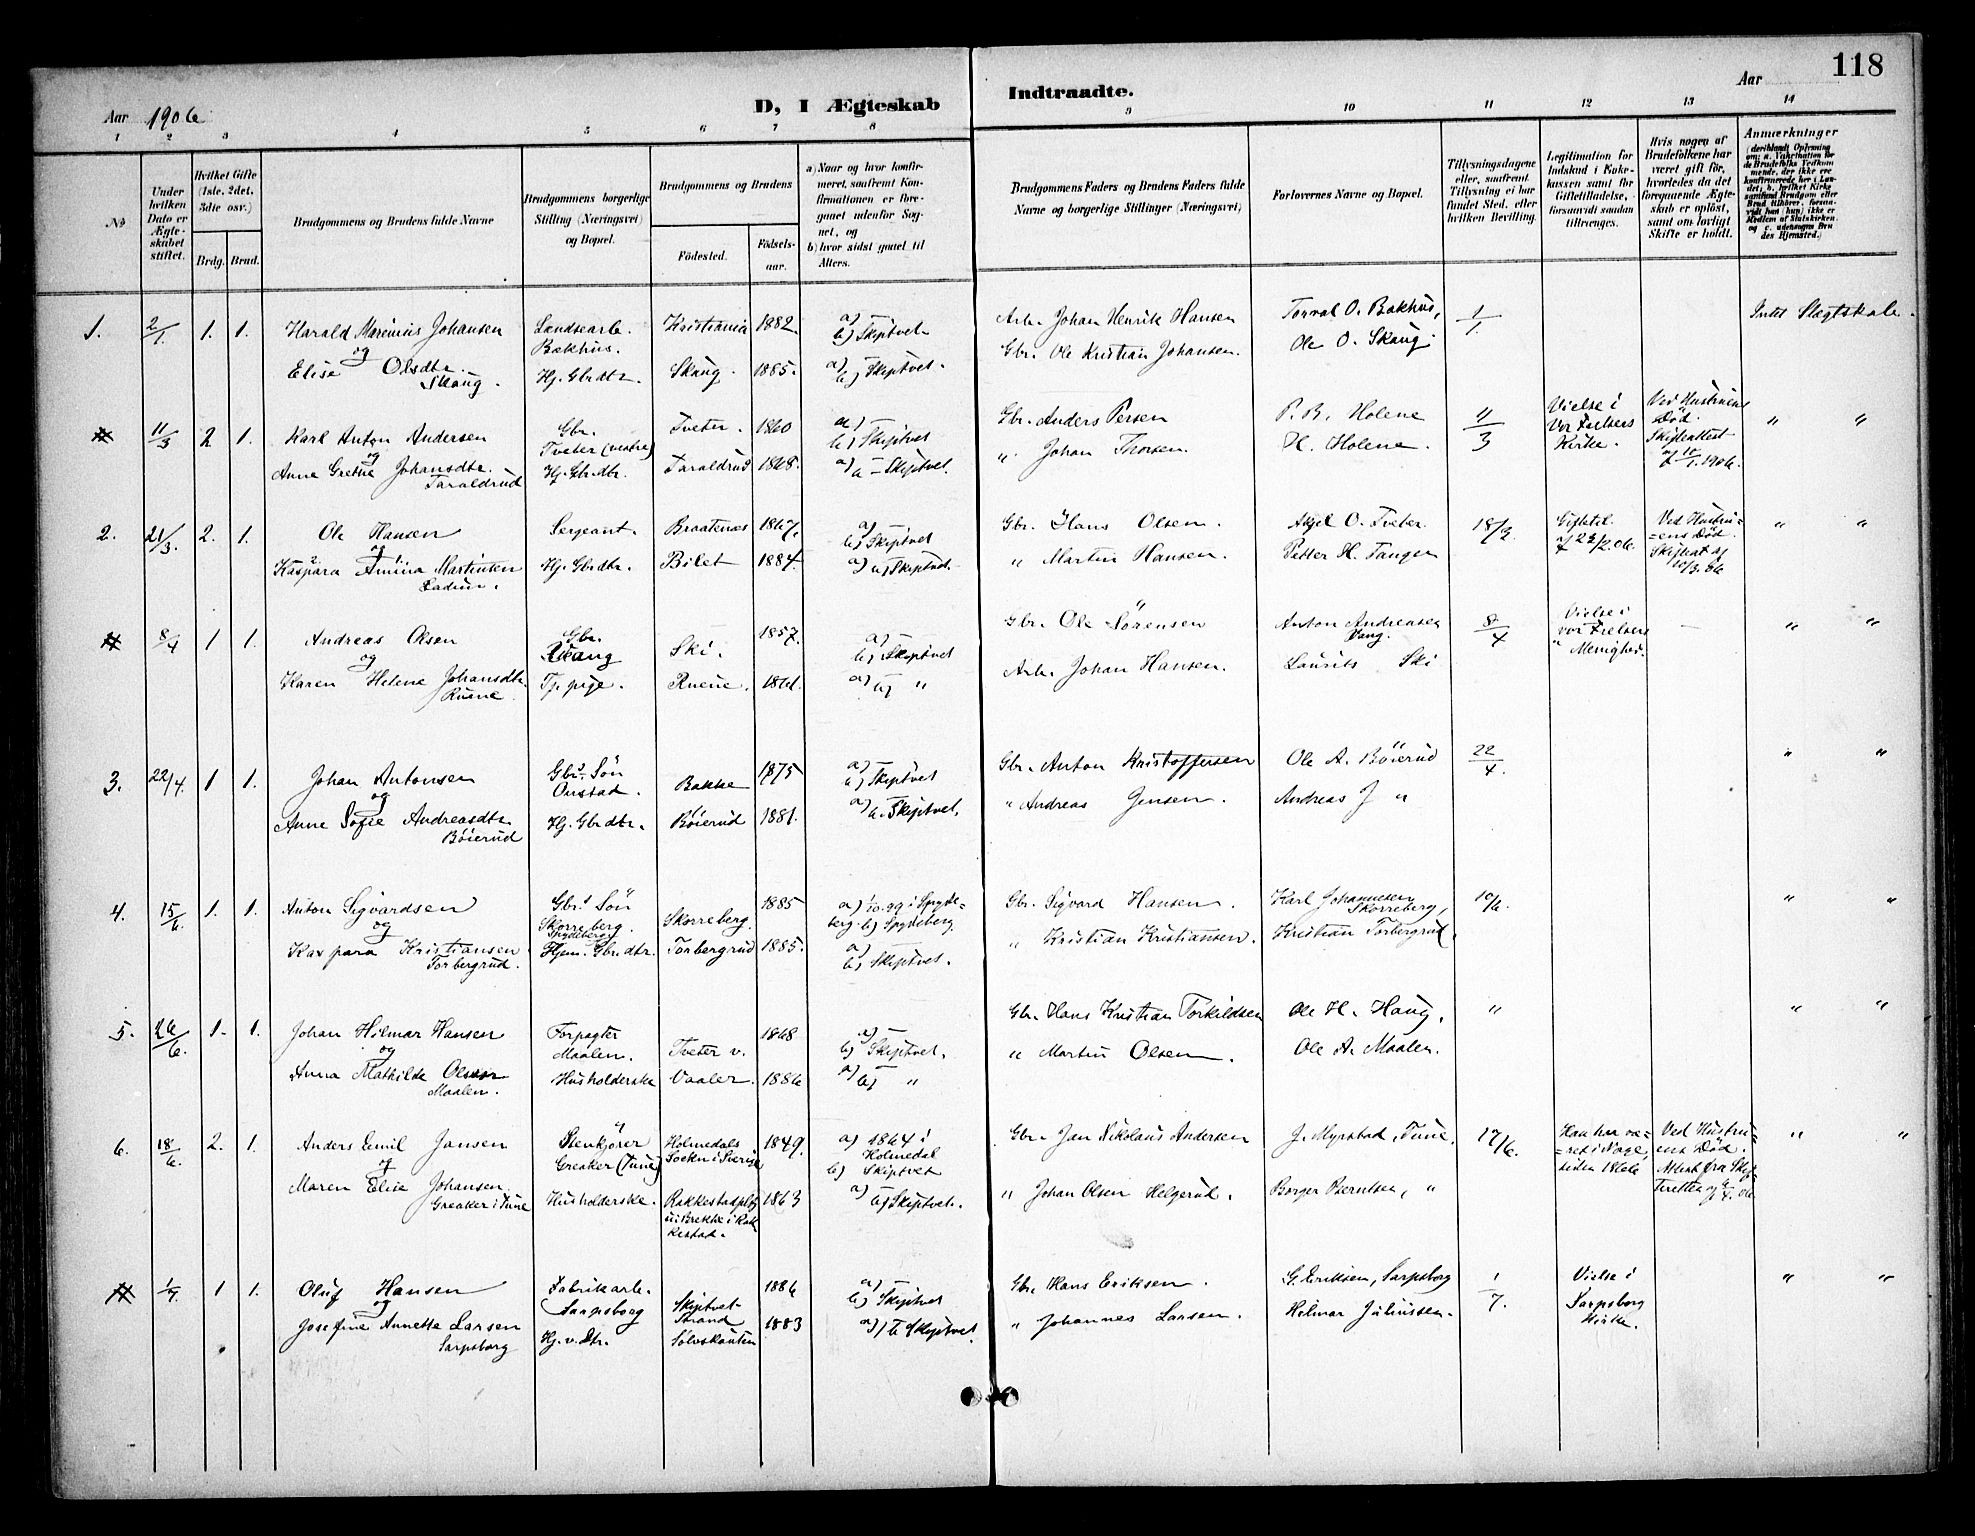 118
Aar 1906
D, I Ægteskab Indtraadte.
Aar
1 2 3 4 5 6 7 8 9 10 11 12 13 14
No
Under hvilken Dato er Ægteskabet stiftet.
Hvilket Gifte (1ste, 2det, 3die osv.)
Brdg. Brud.
Brudgommens og Brudens fulde Navne
Brudgommens borgerlige Stilling (Næringsvei) og Bopæl.
Brudgommens og Brudens
Fødested.
Fødselsaar.
a) Naar og hvor konfirmeret, saafremt Konfirmationen er foregaaet udenfor Sognet, og
b) hvor sidst gaaet til Alters.
Brudgommens Faders og Brudens Faders fulde Navne og borgerlige Stillinger (Næringsvei)
Forlovernes Navne og Bopæl.
Tillysningsdagene eller, saafremt Tillysning ei har fundet Sted, efter hvilken Bevilling.
Legitimation for Indskud i Enkekassen samt for Giftetilladelse, forsaavidt saadan tiltrænges.
Hvis nogen af Brudefolkene har været gift før, hvorledes da det foregaaende Ægteskab er opløst, samt om lovligt Skifte er holdt.
Anmærkninger
1. 2/1 1. 1. Harald Marinius Johansen
og
Elise Olsdtr.
Skaug.
Landsearb.
Bakhus.
Hj. Gbrdtr.
Kristiania 1882.
Skaug. 1885.
a) —
b) Skiptvet
a) —
b) Skiptvet.
Arb. Johan Henrik Hansen
Gbr. Ole Kristian Johansen.
Torval O. Bakhus,
Ole O. Skaug.
1/1
Intet Slægtskab.
11/3 2 1. Karl Anton Andersen
og
Anne Grethe Johansdtr.
Taraldrud
Gbr.
Tveter (vestre)
Hj. Gbrdtr.
Tveter. 1860
Taraldrud 1868.
a) —
b) Skiptvet
a) b — Skiptvet.
Gbr. Anders Persen
" Johan Thorsen.
P. B. Holene
H. Holene.
11/3
Vielse i
Vor Frelsers
Kirke.
Ved Hustruens
Død.
Skifteattest
af 10/1.1906.
" "
2. 21/3. 2. 1. Ole Hansen
og
Kaspara Amina Martinsen
Ladim.
Sergeant.
Hj. Gbrdtr.
Braatenæs 1867.
Bilet 1884.
a) —
b) Skiptvet
a) b) Skiptvet.
Gbr. Hans Olsen.
" Martin Hansen.
Axel O. Tveter.
Petter H. Tangen
18/3.
Giftetil.
af 22/2.06.
Ved Hustru-
=ens Død.
Skifteat af
10/3.06
" "
8/4 1 1. Andreas Olsen
og
Karen Helene Johansdtr.
Ruene.
Gbr.
Vang
Tj. pige.
Ski. 1857.
Ruene. 1861.
a) —
b) Skiptvet
a) b) "
Gbr. Ole Sörensen
Arb. Johan Hansen.
Anton Andreasen
Vang.
Laurits Ski
8/4
Vielse i
vor Frelsers
Menighed.
—
" "
3. 22/4. 1 1. Johan Antonsen
og
Anne Sofie Andreasdtr.
Böierud
Gbrs. Sön
Onstad.
Hj. Gbrdtr.
Bakke 1875
Böierud 1881.
a) —
b) Skiptvet
a) —
b. Skiptvet.
Gbr. Anton Kristoffersen
" Andreas Jensen.
Ole A. Böierud
Andreas J "
22/4.
" "
4. 15/6. 1. 1. Anton Sigvardsen
og
Kaspara Kristiansen
Torbergrud.
Gbrs Sön
Skorreberg.
Spydeberg
Hjem. Gbrdtr.
Skorreberg. 1885
Torbergrud 1885.
a) 1/10.99 i Spyde-
berg. b) Spydeberg
a) —
b) Skiptvet.
Gbr. Sigvard Hansen.
" Kristian Kristiansen.
Karl Johannesen
Skorreberg,
Kristian Torbergrud.
10/6.
" "
5. 26/6. 1. 1. Johan Hilmar Hansen
og
Anna Mathilde Olsen
Maalen.
Forpagter
Maalen.
Husholderske
Tveter v. 1868
Vaaler. 1886
a) —
b) Skiptvet.
a) b) "
Gbr. Hans Kristian Torkildsen
" Martin Olsen.
Ole H. Haug.
Ole A. Maalen.
"
" "
6. 18/6. 2. 1. Anders Emil Jansen
og
Maren Elise Johansen
Greaker i Tune
Stenkjörer
Greaker (Tune)
Husholderske.
Holmedals
Sockn i Sverige 1849.
Rakkestadplds
u. Brekke i Rak
kestad. 1863
a) 1864 i
Holmedal
b) Skiptvet
a) b) Skiptvet.
Gbr. Jan Nikolaus Andersen
" Johan Olsen Helgerud.
J. Myrstad, Tune.
Borger Berntsen, "
17/6.
Han har væ-
=ret i Norge,
siden 1866
Ved Hustru-
ens Død.
Attest fra Skif-
teretten
" "
1/7 1 1. Oluf Hansen
og
Josefine Annette Larsen
Sarpsborg
Fabrikarb.
Sarpsborg
Hj. v. Dtr.
Skiptvet
Strand 1886
Solvskouten 1883
a) —
b) Skiptvet
a) b Skiptvet.
Gbr. Hans Eriksen.
" Johannes Larsen.
G. Eriksen, Sarpsborg
Helmar Juliussen.
1/7.
Vielse i
Sarpsborg
Kirke.
" "